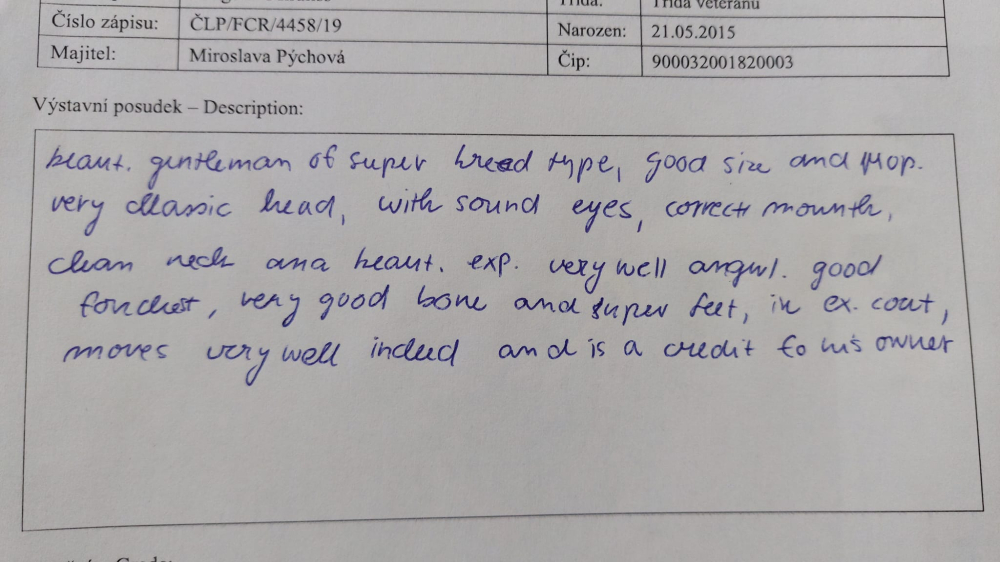 Třída: Třída veteránů
Číslo zápisu: ČLP/FCR/4458/19 Narozen: 21.05.2015
Majitel: Miroslava Pýchová Čip: 900032001820003
Výstavní posudek – Description:
beaut. gentleman of super breed type, good size and prop.
very classic head, with sound eyes, correct mounth,
clean neck and beaut. exp. very well angul. good
forchest, very good bone and super feet, in ex. coat,
moves very well indeed and is a credit to his owner